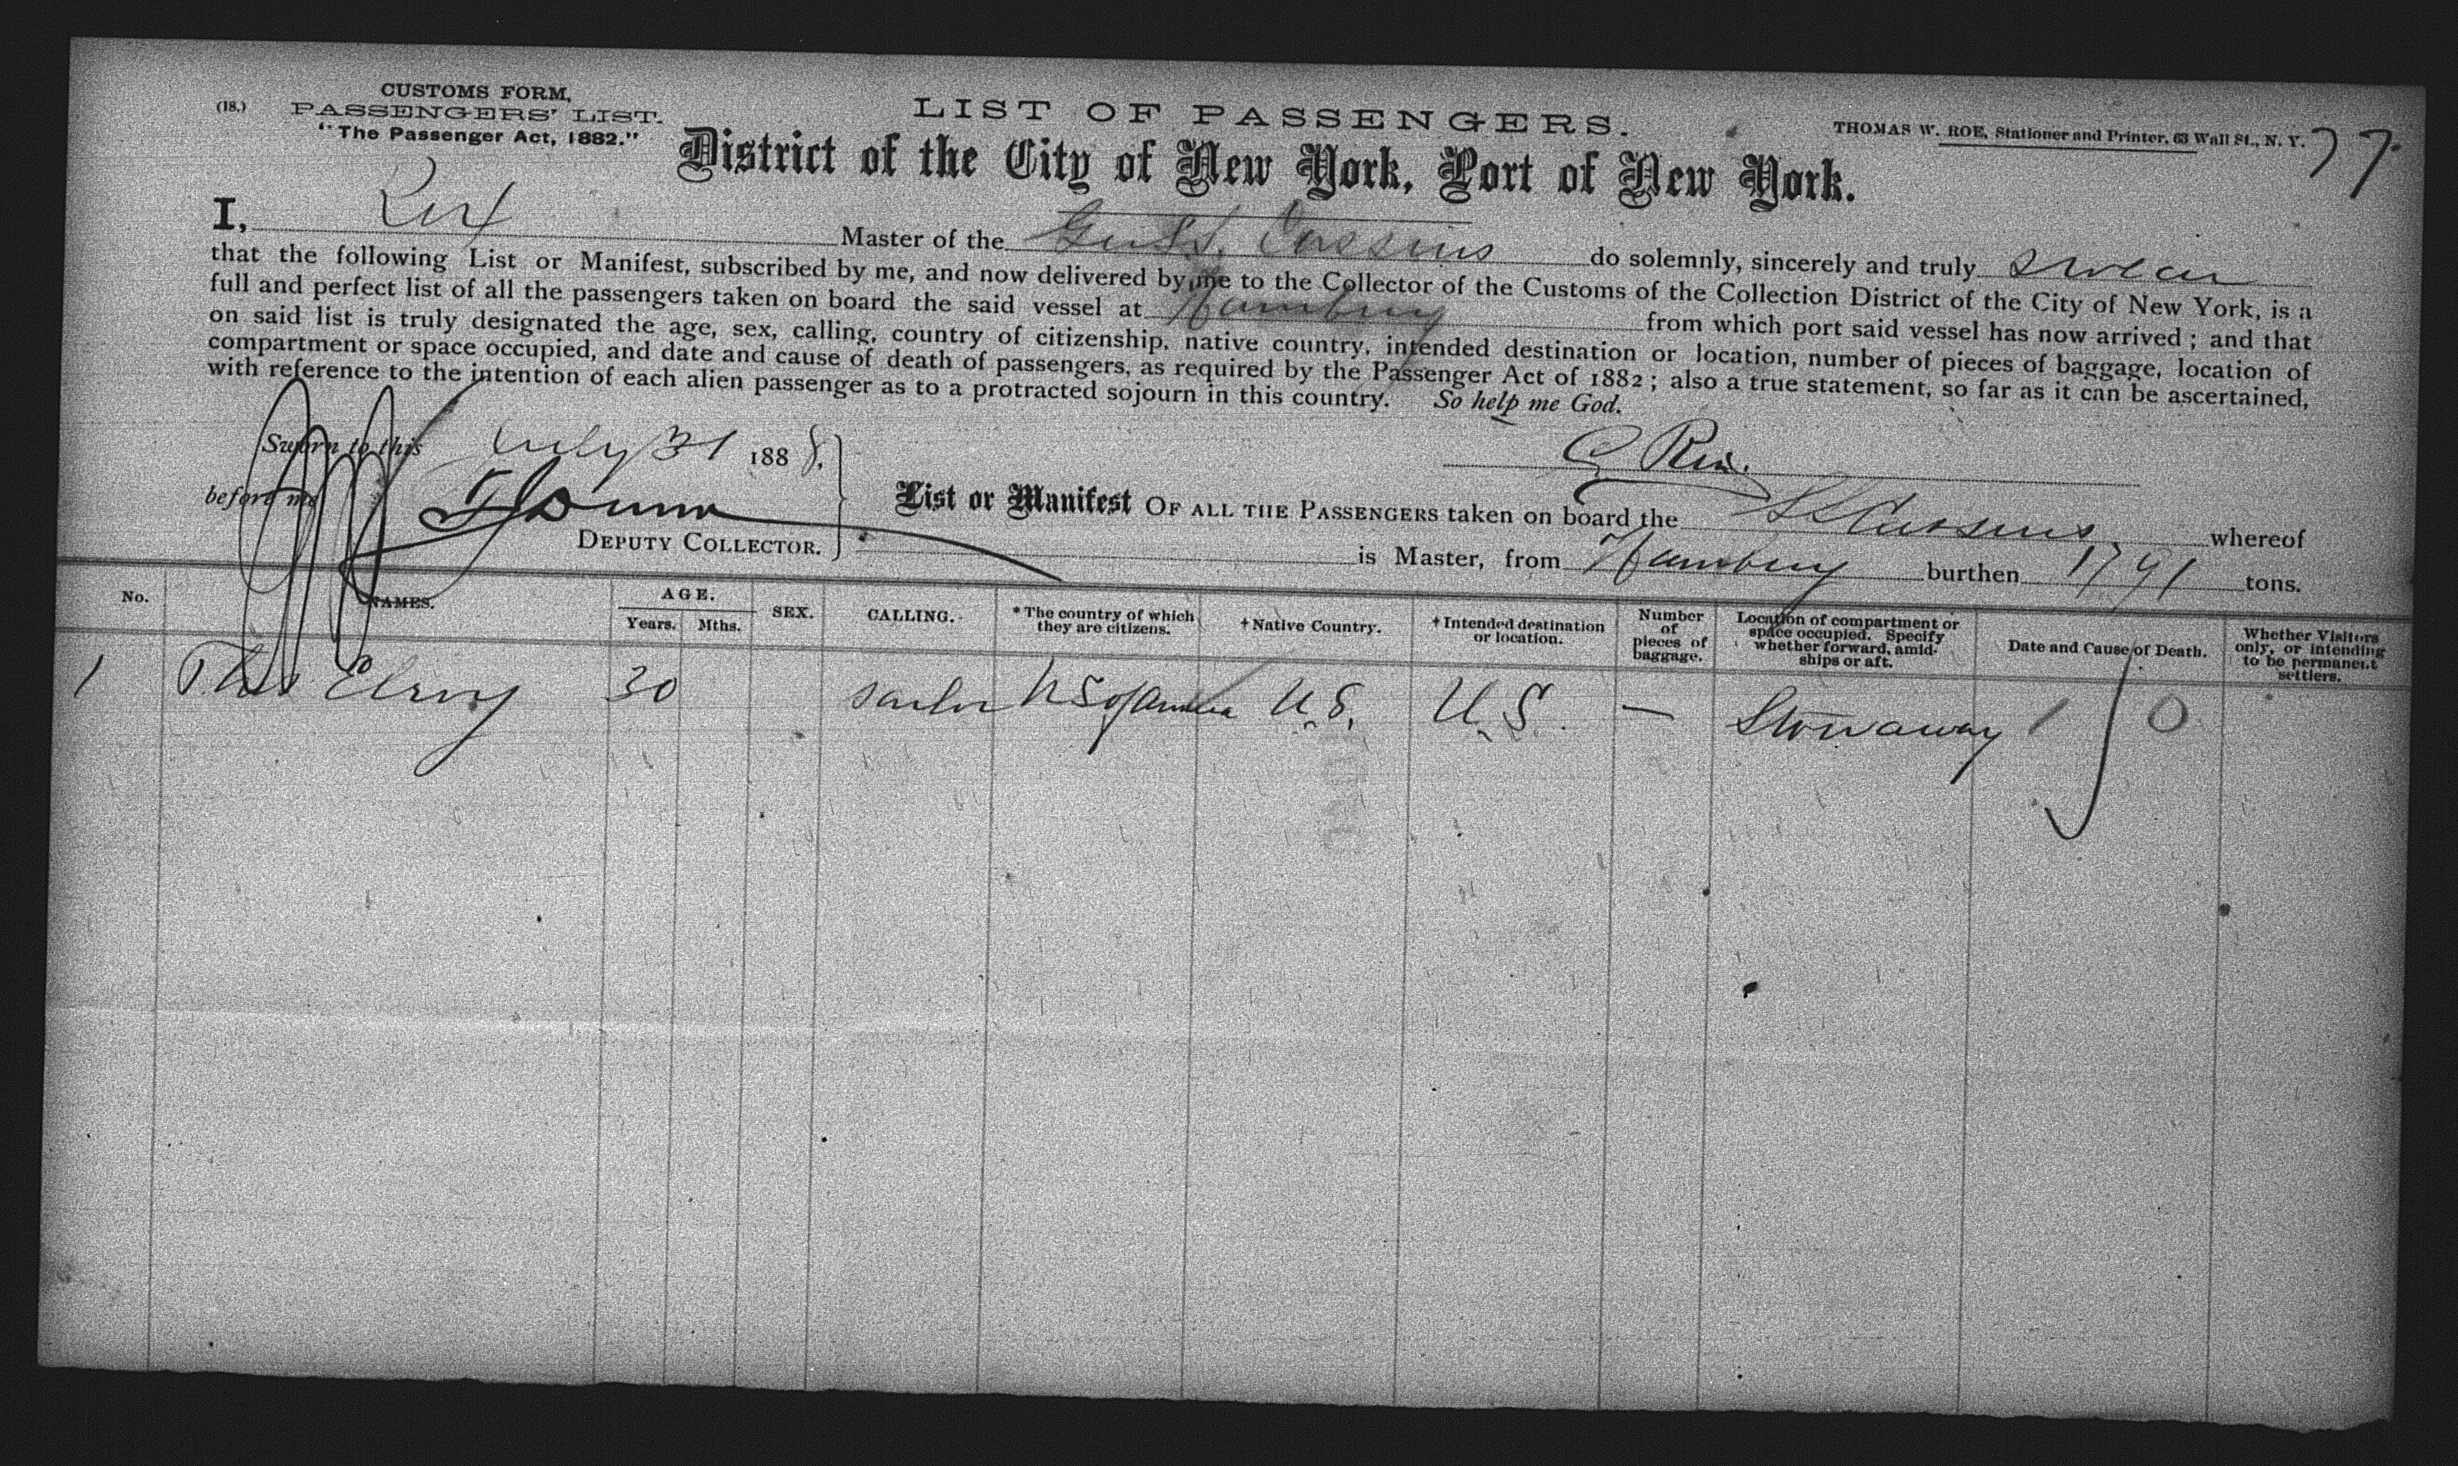 (18.)
CUSTOMS FORM,
PASSENGERS' LIST.
"The Passenger Act, 1882."
LIST OF PASSENGERS.
THOMAS W. ROE, Stationer and Printer, 63 Wall St., N. Y.
77
District of the City of New York, Port of New York.
I, Master of the do solemnly, sincerely and truly swear
that the following List or Manifest, subscribed by me, and now delivered by me to the Collector of the Customs of the Collection District of the City of New York, is a
full and perfect list of all the passengers taken on board the said vessel at Hamburg from which port said vessel has now arrived; and that
on said list is truly designated the age, sex, calling, country of citizenship, native country, intended destination or location, number of pieces of baggage, location of
compartment or space occupied, and date and cause of death of passengers, as required by the Passenger Act of 1882; also a true statement, so far as it can be ascertained,
with reference to the intention of each alien passenger as to a protracted sojourn in this country. So help me God.
Sworn to this July 31 1888.
before me
DEPUTY COLLECTOR.
List or Manifest OF ALL THE PASSENGERS taken on board the whereof
is Master, from Hamburg burthen 1791 tons.
No. NAMES. AGE. Years. Mths. SEX. CALLING. *The country of which they are citizens. †Native Country. †Intended destination or location. Number of pieces of baggage. Location of compartment or space occupied. Specify whether forward, amidships or aft. Date and Cause of Death. Whether Visitors only, or intending to be permanent settlers.
1 Thos 30 sailor U S of America U.S. U.S. — Stowaway 1 0